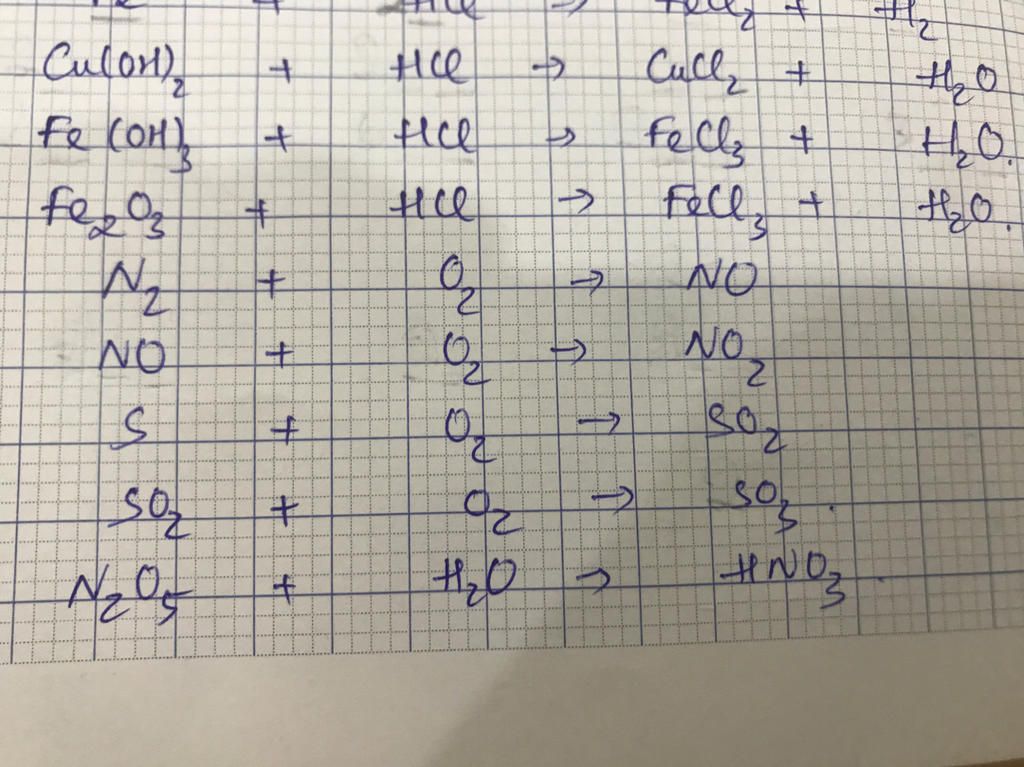 HCl → FeCl₂ + H₂
Cu(OH)₂ + HCl → CuCl₂ + H₂O
Fe(OH)₃ + HCl → FeCl₃ + H₂O.
Fe₂O₃ + HCl → FeCl₃ + H₂O.
N₂ + O₂ → NO
NO + O₂ → NO₂
S + O₂ → SO₂
SO₂ + O₂ → SO₃.
N₂O₅ + H₂O → HNO₃.